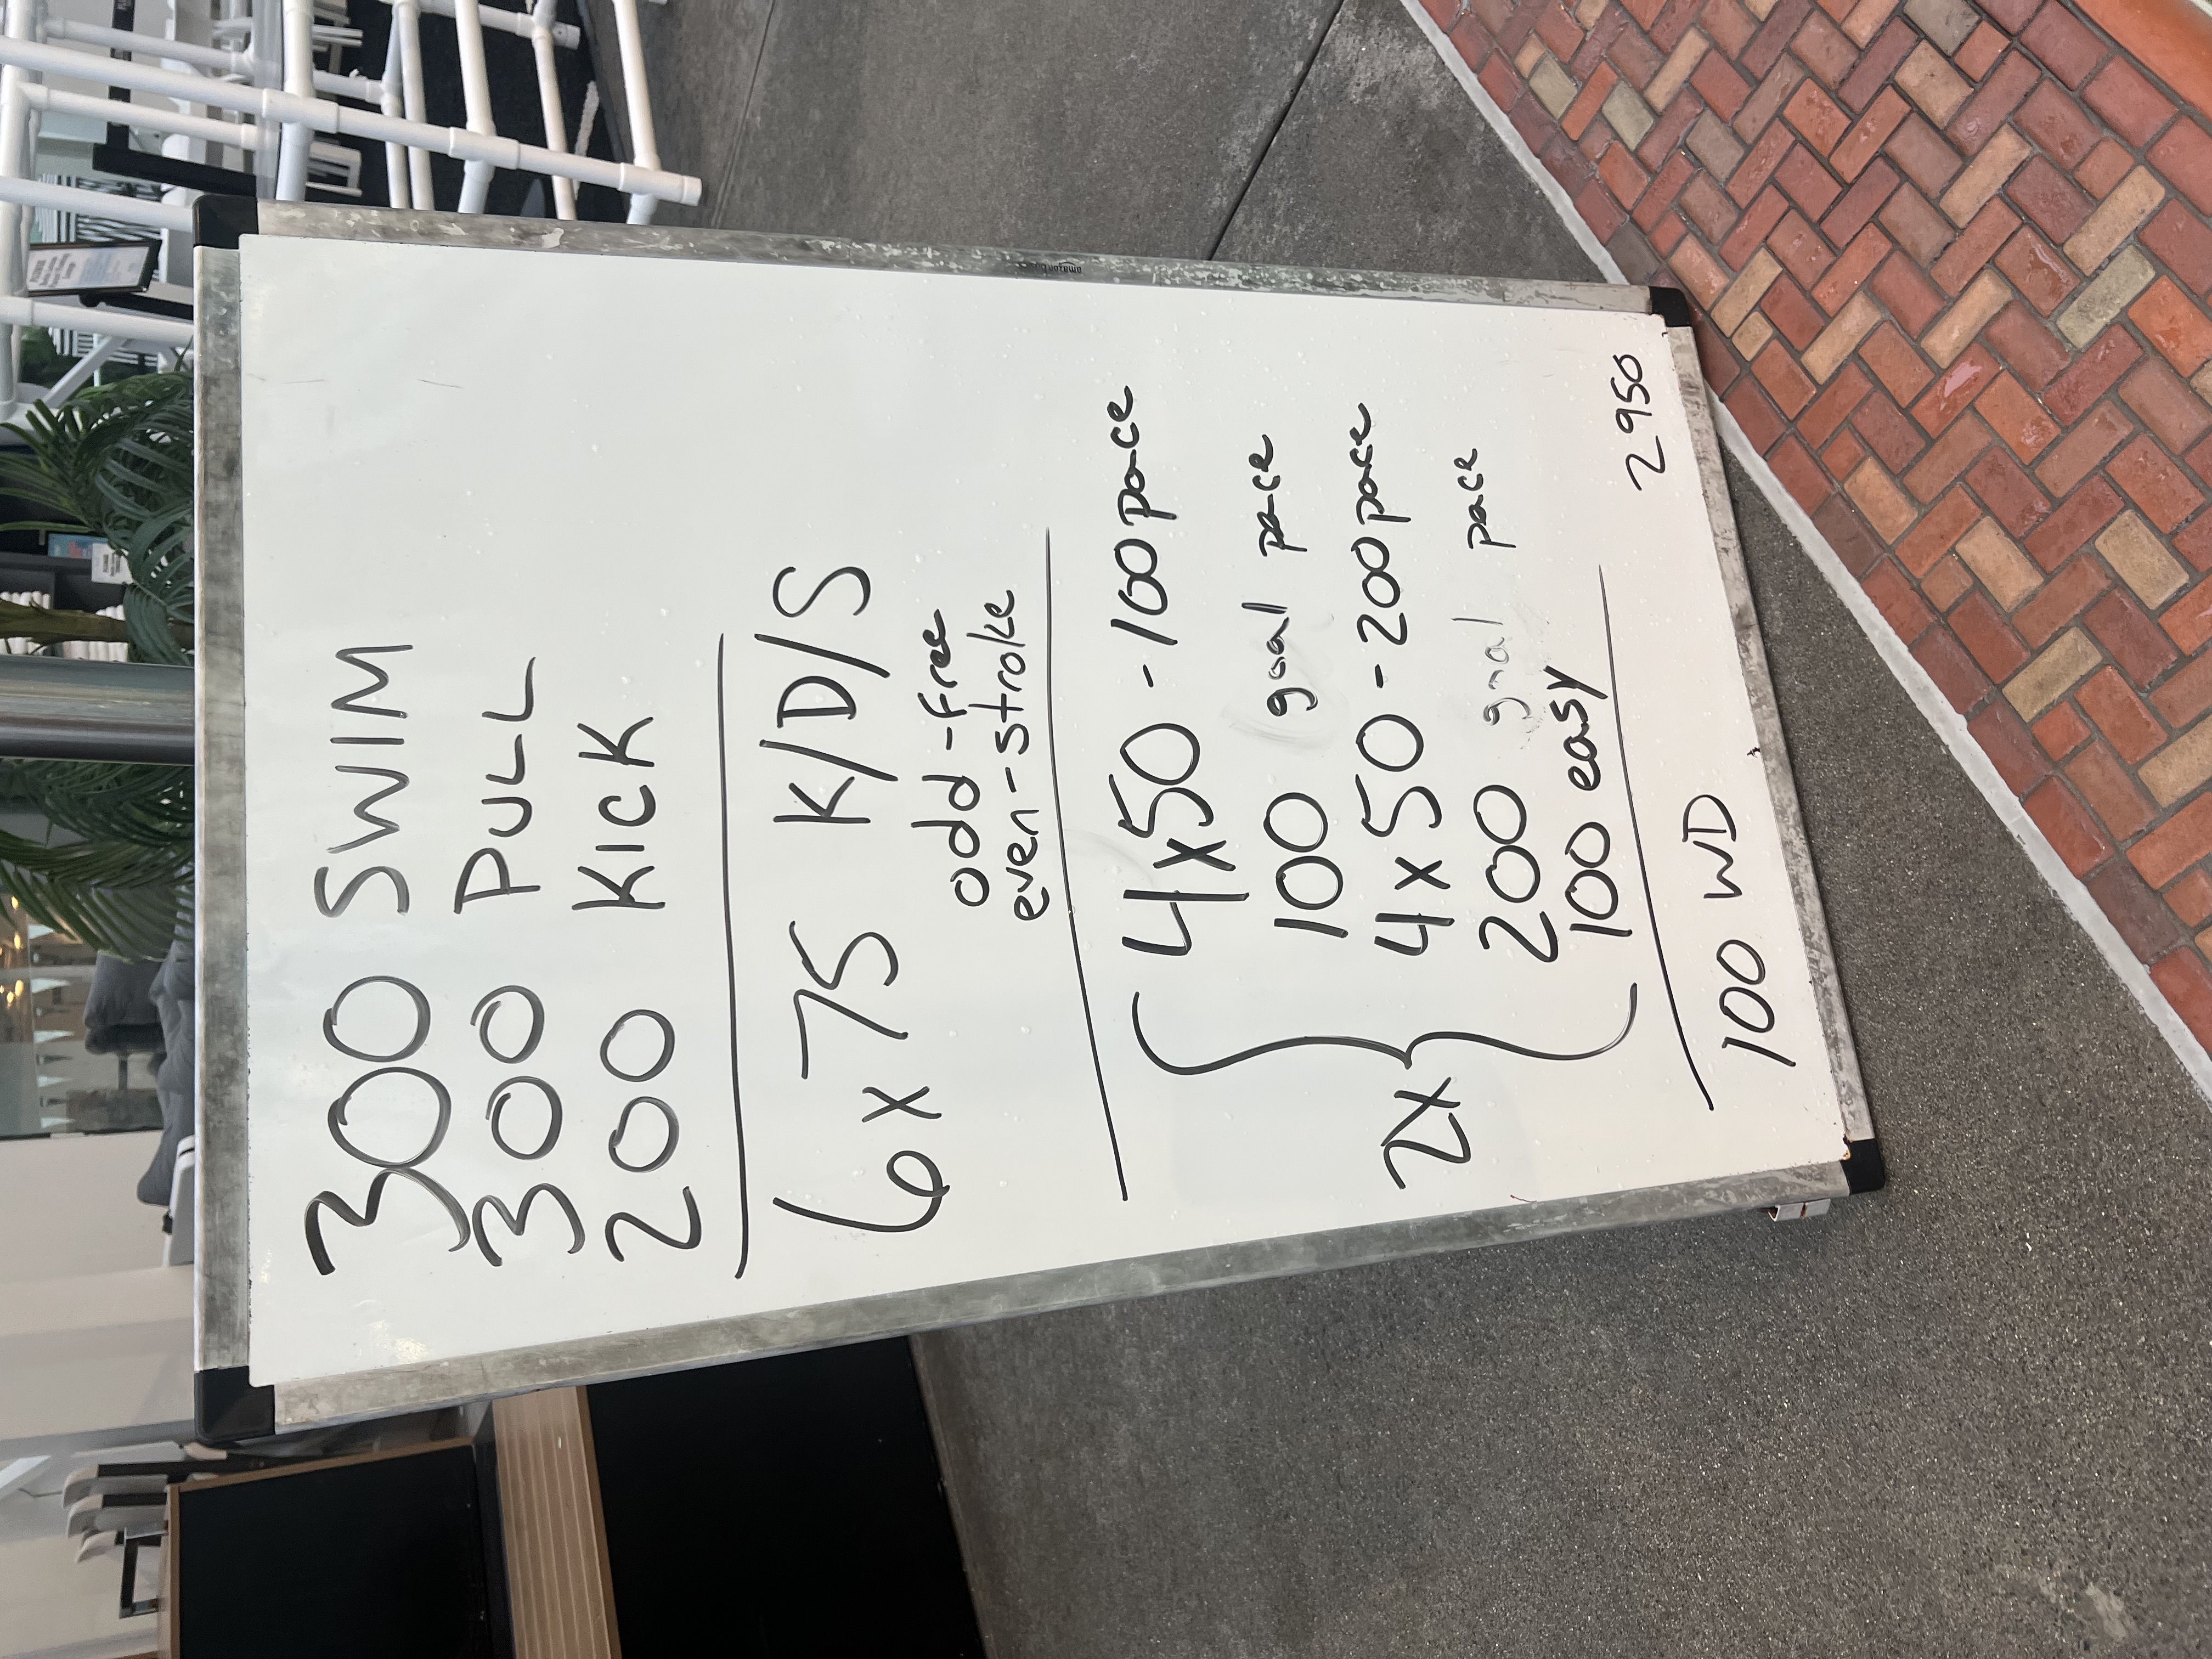 300 SWIM
300 PULL
200 KICK
6 x 75 K/D/S
odd - free
even - stroke
2x
4x50 - 100 pace
100 goal pace
4x50 - 200 pace
200 goal pace
100 easy
100 WD
2950